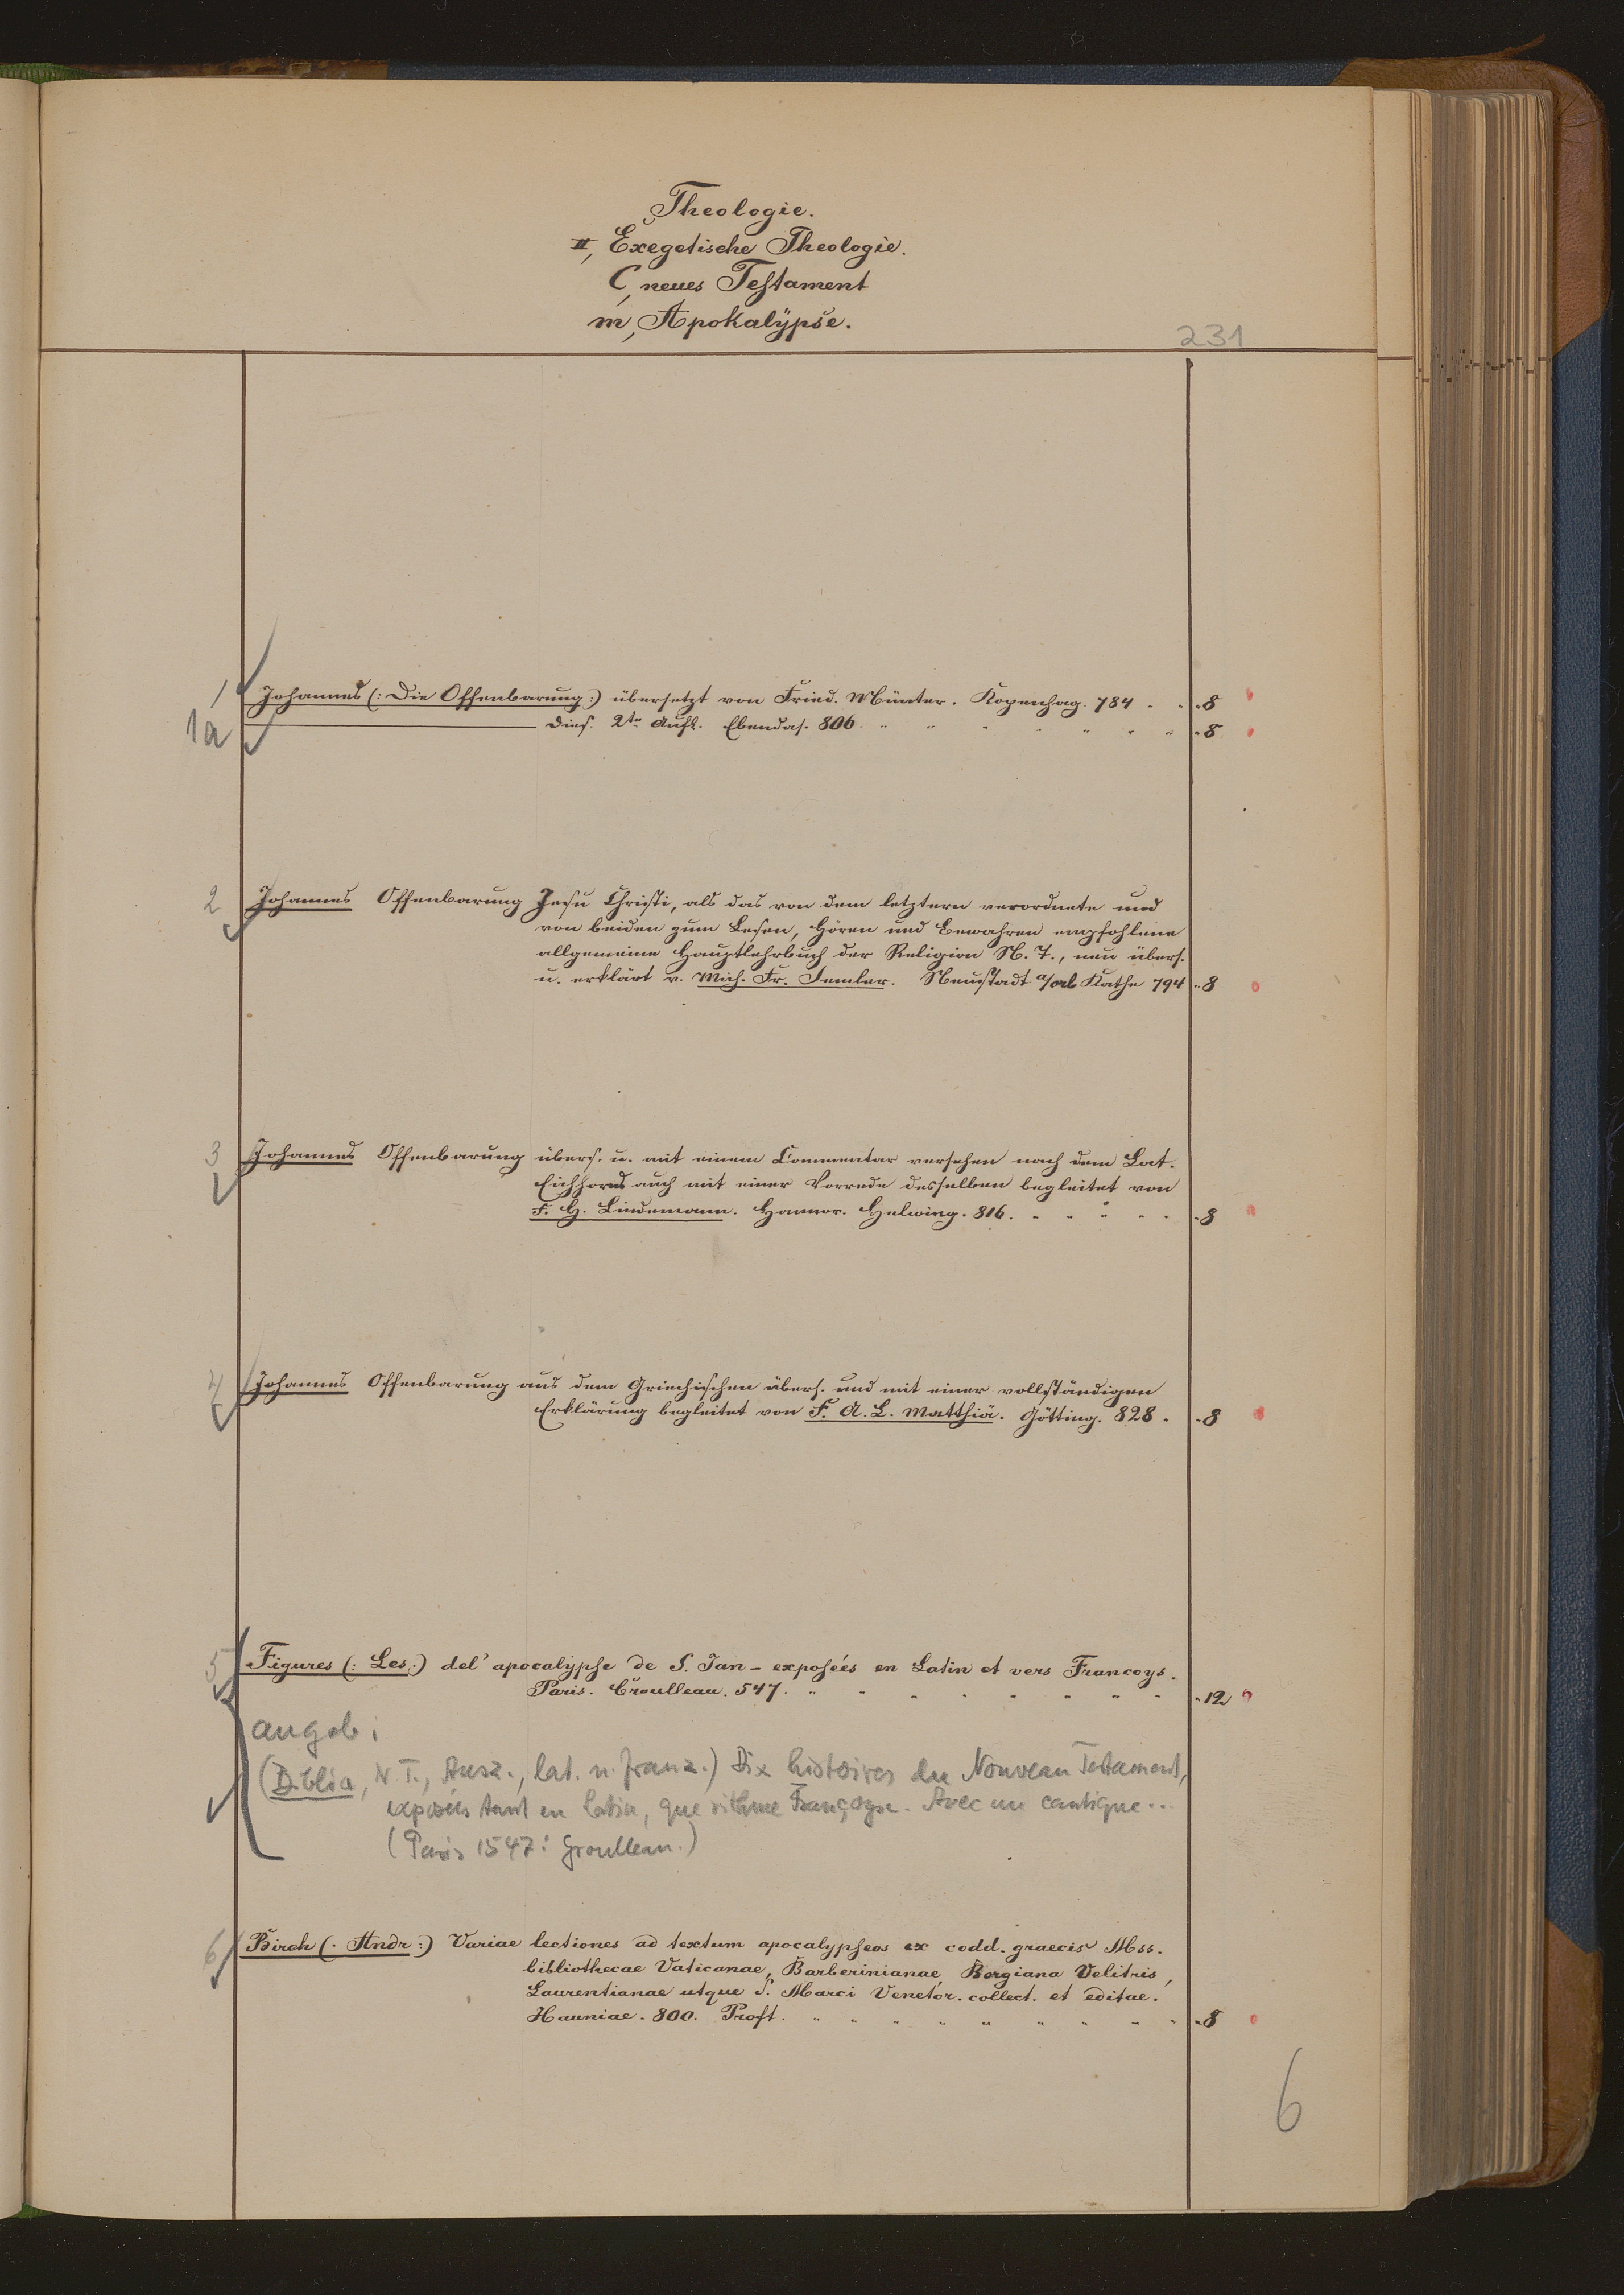 Theologie.
II, Exegetische Theologie.
C, neues Testament
m, Apokalÿpse.
231
1 Johannes (: Die Offenbarung :) übersetzt von Fried. Münter. Kopenhag. 784 - - - 8
1a Dies. 2te Aufl. Ebendas. 806. " " " " " " " - 8
2 Johannes Offenbarung Jesu Christi, als das von dem letztern verordnete und
von beiden zum Lesen, Hören und Bewahren empfohlene
allgemeine Hauptlehrbuch der Religion N. T., neu übers.
u. erklärt v. Mich. Fr. Semler. Neustadt a/orl Kathe 794 - 8
3 Johannes Offenbarung übers. u. mit einem Commentar versehen nach dem Lat.
Eichhorns auch mit einer Vorrede desselben begleitet von
F. H. Lindemann. Hannov. Helwing. 816. - - - - - - 8
4 Johannes Offenbarung aus dem Griechischen übers. und mit einer vollständigen
Erklärung begleitet von F. A. L. Matthiä. Götting. 828 - - 8
5 Figures (: Les :) del' apocalÿpse de S. Jan - exposées en Latin et vers Francoys.
Paris. Croulleau. 547. " " " " " " " " - 12
angeb:
(Biblia, N. T., Ausz., lat. u. franz.) Dix histoires du Nouveau Testament,
exposées tant en latin, que rithme Françoyse. Avec un cantique...
(Paris 1547: Groulleau.)
6 Birch (: Andr :) Variae lectiones ad textum apocalypseos ex codd. graecis Mss.
bibliothecae Vaticanae, Barberinianae, Borgiana Velitris,
Laurentianae utque S. Marci Venetor. collect. et editae.
Hauniae. 800. Proft. " " " " " " " " " - 8
6